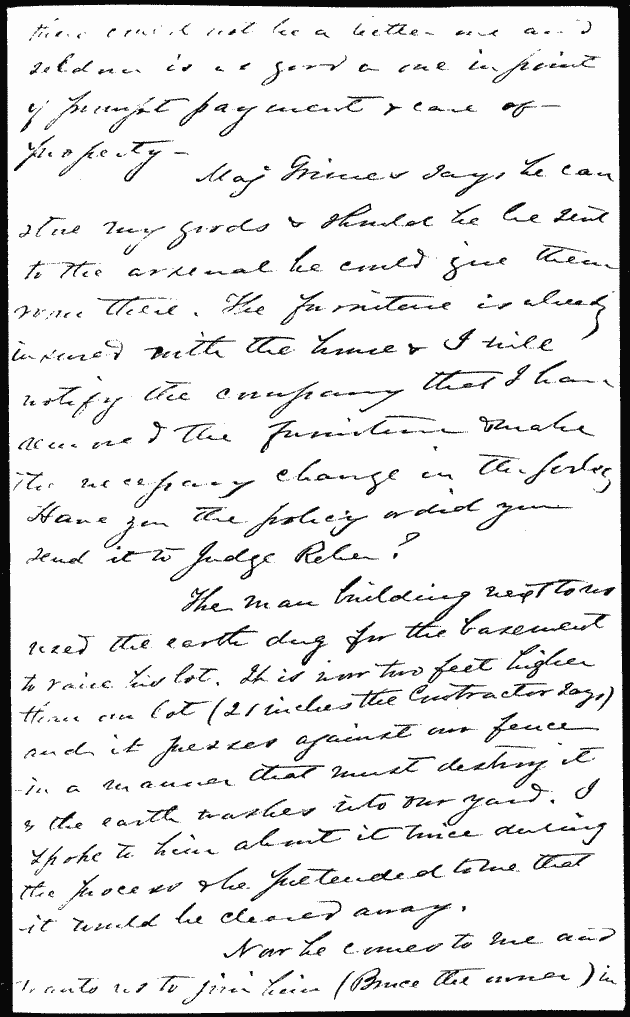 there could not be a better one and
seldom is as good a one in point
of prompt payment & care of
property —
Maj Grimes says he can
store my goods & should he be sent
to the arsenal he could give them
room there. The furniture is already
insured with the house & I will
notify the company that I have
removed the furniture & make
the necessary change in the policy
Have you the policy or did you
send it to Judge Reber?
The man building next to us
used the earth dug for the basement
to raise his lot. It is now two feet higher
than our lot (21 inches the Contractor says)
and it presses against our fence
in a manner that must destroy it
& the earth washes into our yard. I
spoke to him about it twice during
the process & he pretended to me that
it would be cleared away.
Now he comes to me and
wants us to join him (Bruce the owner) in